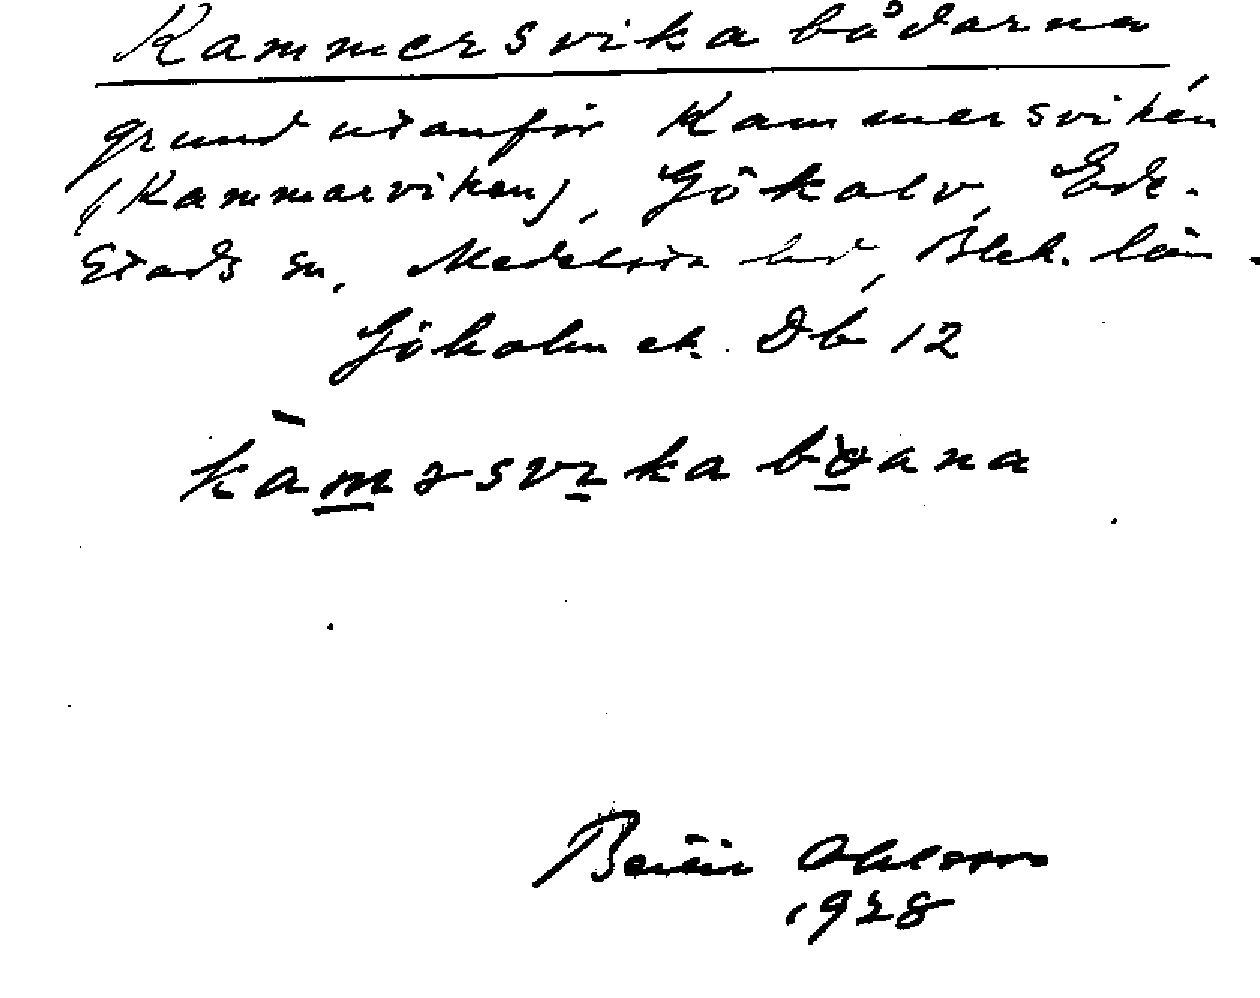 Kammersvika bådarna
grund utanför Kammersviken,
(Kammarviken), Gökalv, Ed-
stads sn, Medelsta hd, Blek. län.
Gökalv ek. Db 12
kamərsvika bοana
Ohlsson
1928